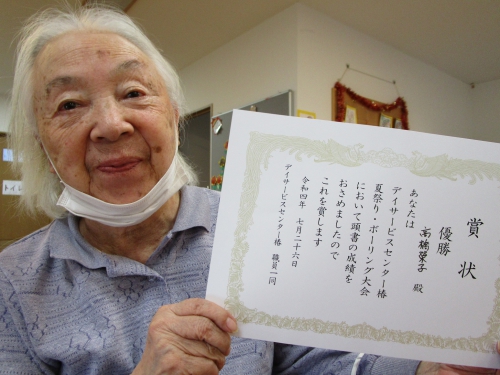 賞状
優勝
高橋榮子 殿
あなたは
デイサービスセンター椿
夏祭り・ボーリング大会
において頭書の成績を
おさめましたので
これを賞します
令和四年 七月二十六日
デイサービスセンター椿 職員一同
トイレ